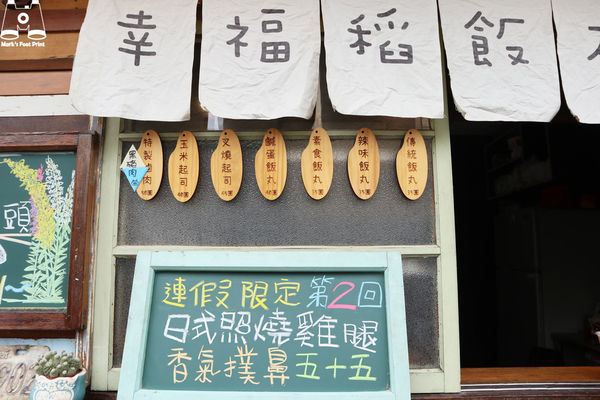 Mark's Foot Print
幸福稻飯
特製
黑豬肉
玉米起司
叉燒起司
鹹蛋飯丸
素食飯丸
辣味飯丸
傳統飯丸
頭
連假限定第2回
日式照燒雞腿
香氣撲鼻五十五